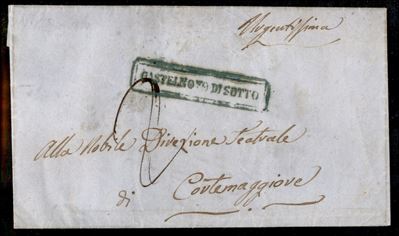 Urgentissima
CASTELNOVO DI SOTTO
2
Alla Nobile Direzione Teatrale
di Cortemaggiore